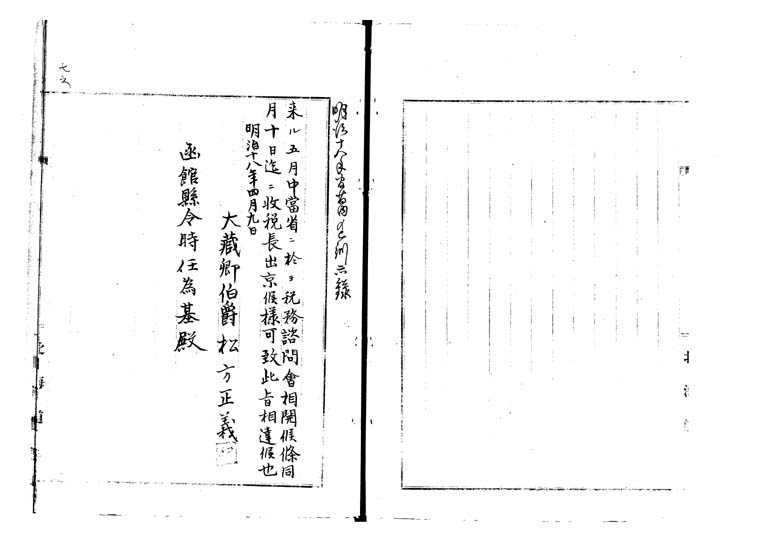 来ル五月中當省ニ於テ税務諮問會相開候條同
月十日迄ニ收税長出京候様可致此旨相達候也
明治十八年四月九日
大藏卿伯爵松方正義
函館縣令時任為基殿
北海道